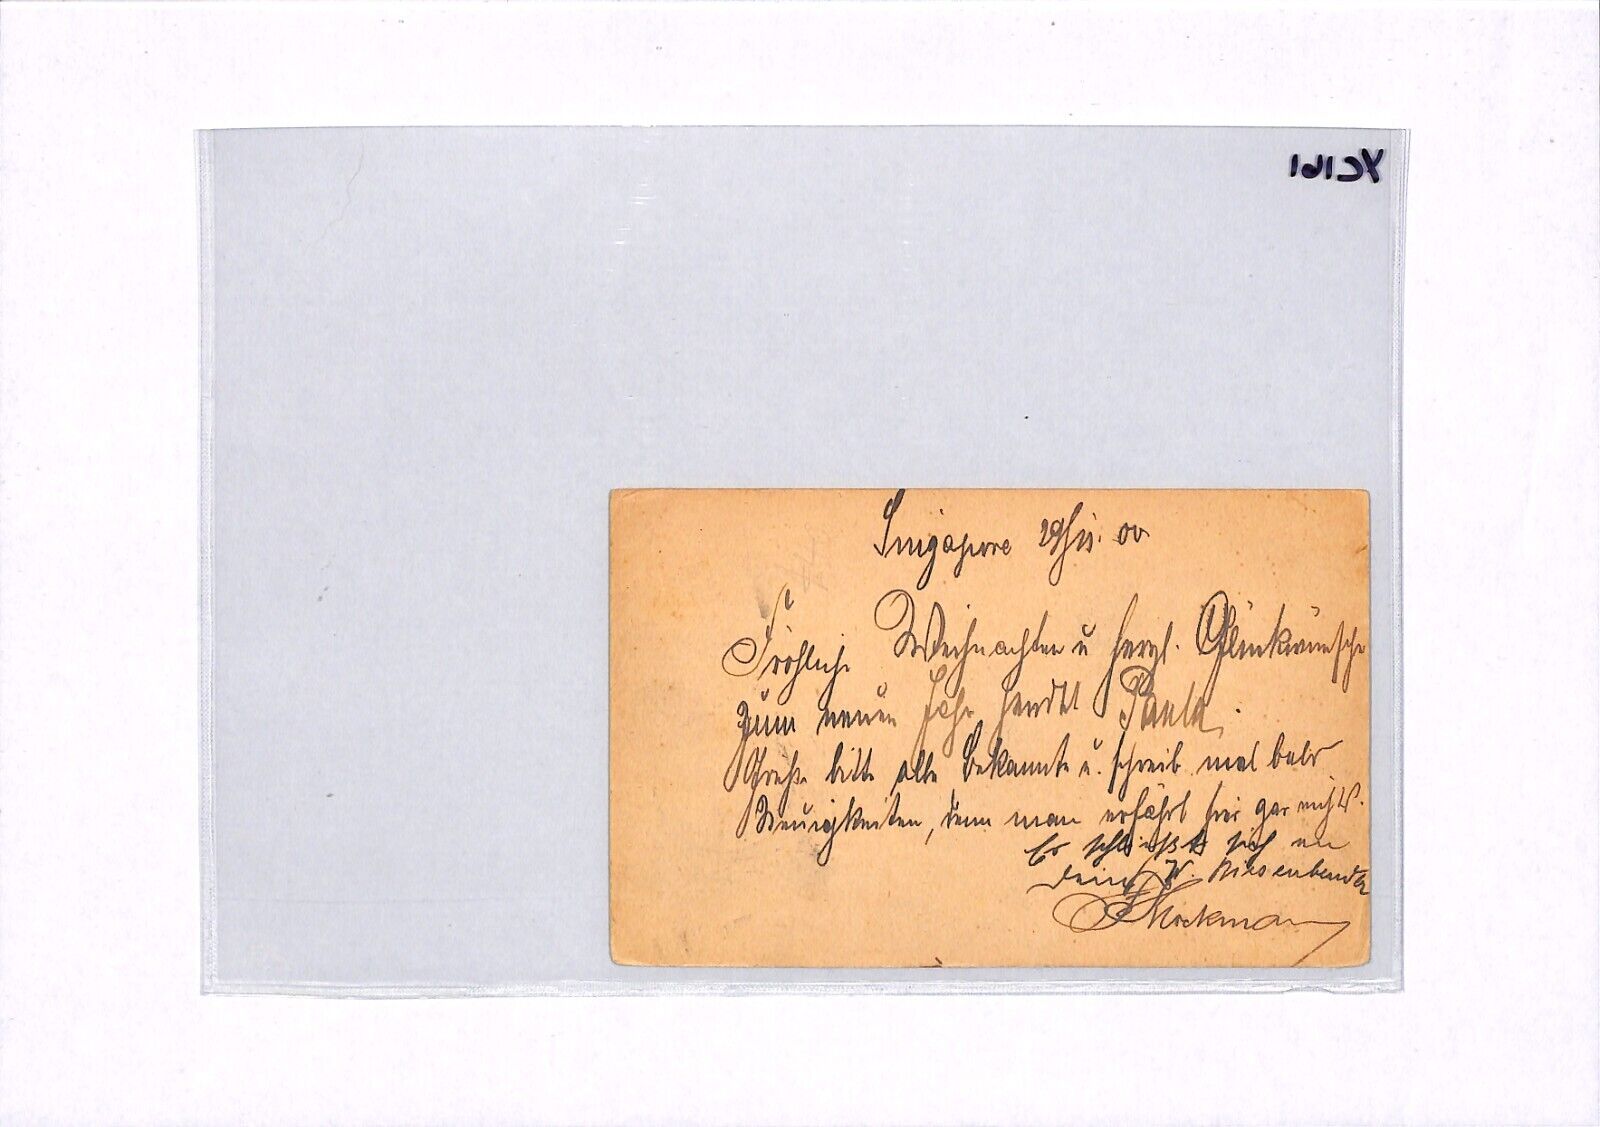 Singapore 29/11. 00
Fröhliche Weihnachten u herzl. Glückwünsche
zum neuen Jahr sendet Paula.
Grüße bitte alle Bekannte u. schreib mal bald
Neuigkeiten, denn man erfährt hier gar nichts.
Es schließt sich an
Dein W.